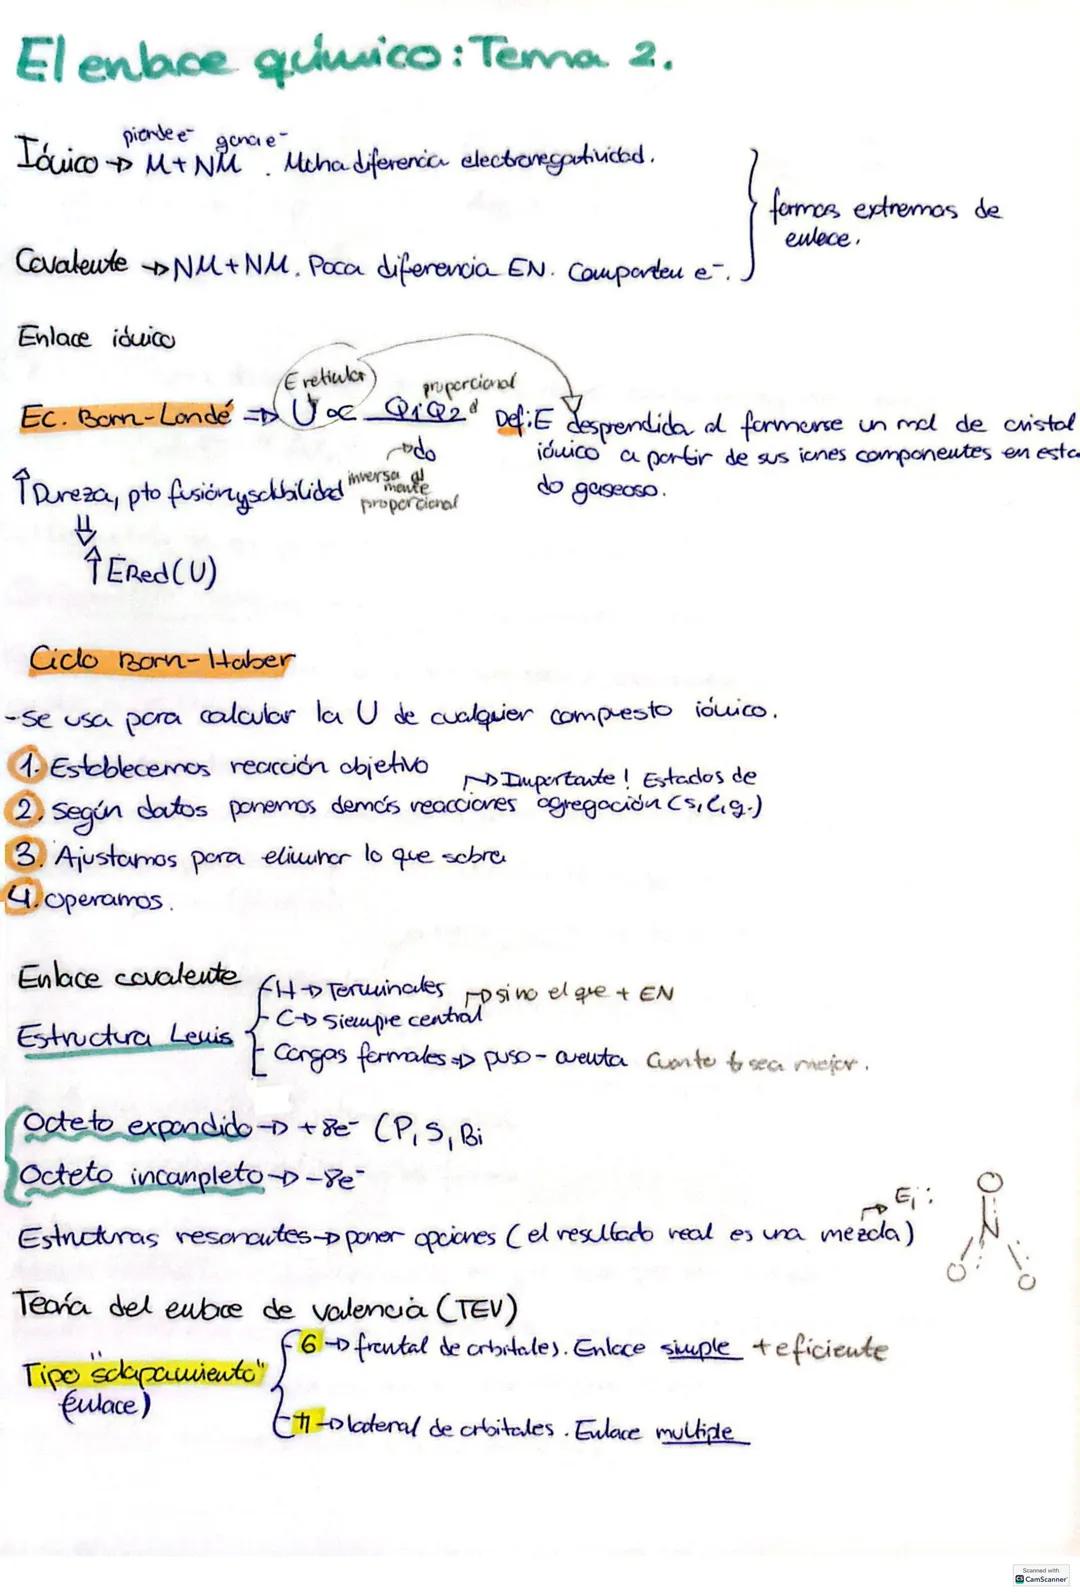 El enlace químico: Tema 2.
pierde e⁻ gana e⁻
Iónico → M + NM. Mcha diferencia electronegatividad.
formas extremas de
enlace.
Covalente → NM + NM. Poca diferencia EN. Comparten e⁻.
Enlace iónico
E reticular proporcional
Ec. Born-Landé ⇒ U ∝ Q1Q2 Def: E desprendida al formarse un mol de cristal
→ do iónico a partir de sus iones componentes en esta
↑ Dureza, pto fusión y solubilidad inversa mente proporcional do gaseoso.
⇓
↑ ERed (U)
Ciclo Born-Haber
- Se usa para calcular la U de cualquier compuesto iónico.
1. Establecemos reacción objetivo
→ Importante! Estados de
2. Según datos ponemos demás reacciones agregación (s, l, g.)
3. Ajustamos para eliminar lo que sobra
4. operamos.
Enlace covalente
H → Terminales → si no el que + EN
C → Siempre central
Estructura Lewis
Cargas formales ⇒ puso - cuenta Cuanto sea mejor.
Octeto expandido → + 8e⁻ (P, S, Bi
Octeto incompleto → - 8e⁻
Estructuras resonantes → poner opciones (el resultado real es una mezcla) → Ej:
O
N
O O
Teoría del enlace de valencia (TEV)
σ → frontal de orbitales. Enlace simple + eficiente
Tipo "solapamiento"
(enlace)
π → lateral de orbitales. Enlace multiple
Scanned with
CS CamScanner